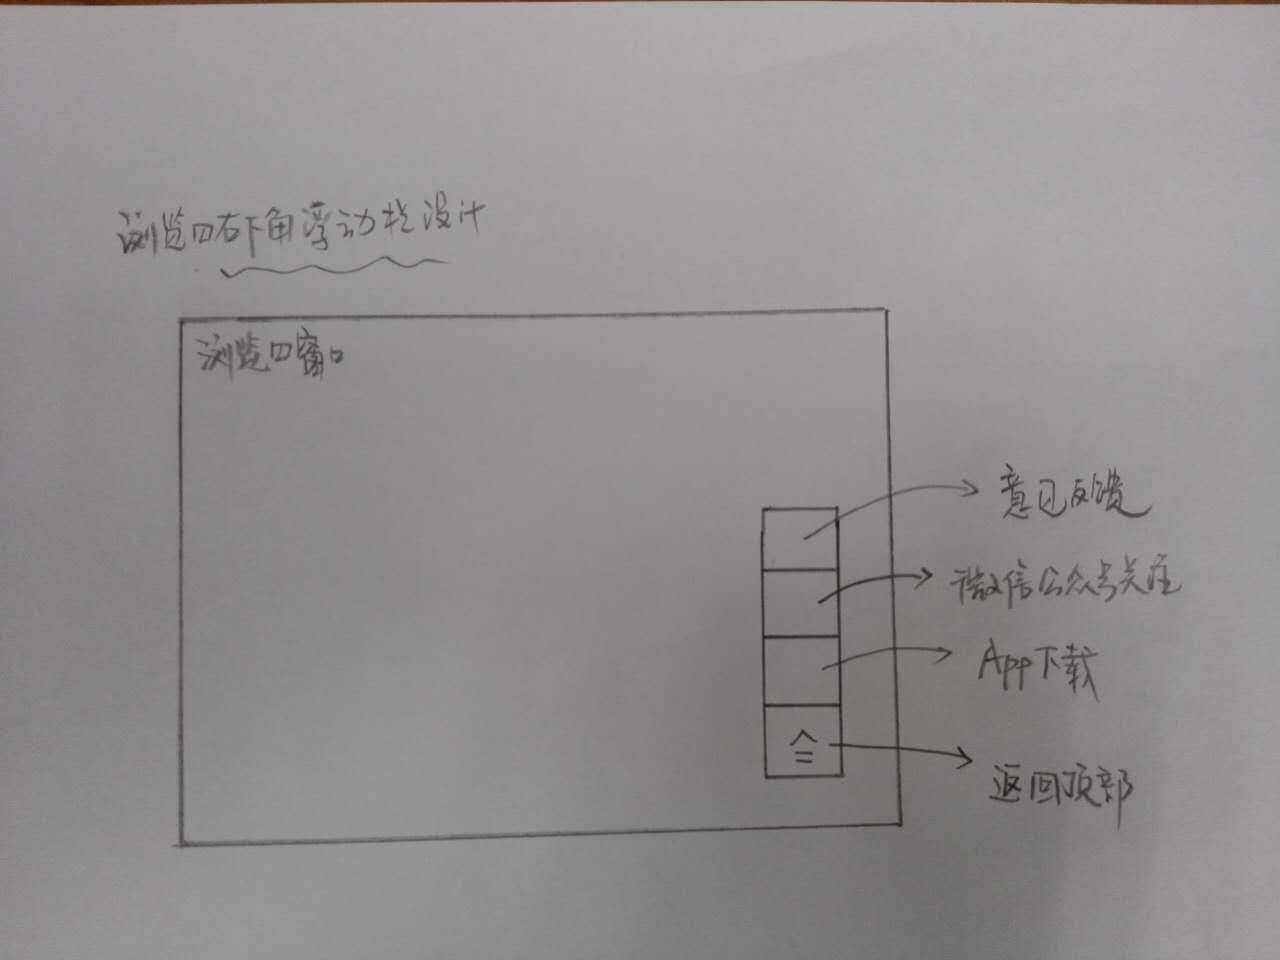 浏览口右下角浮动栏设计
浏览口窗口
意见反馈
微信公众号关注
App下载
返回顶部